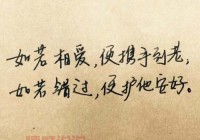 如若相爱,便携手到老,
如若错过,便护他安好。